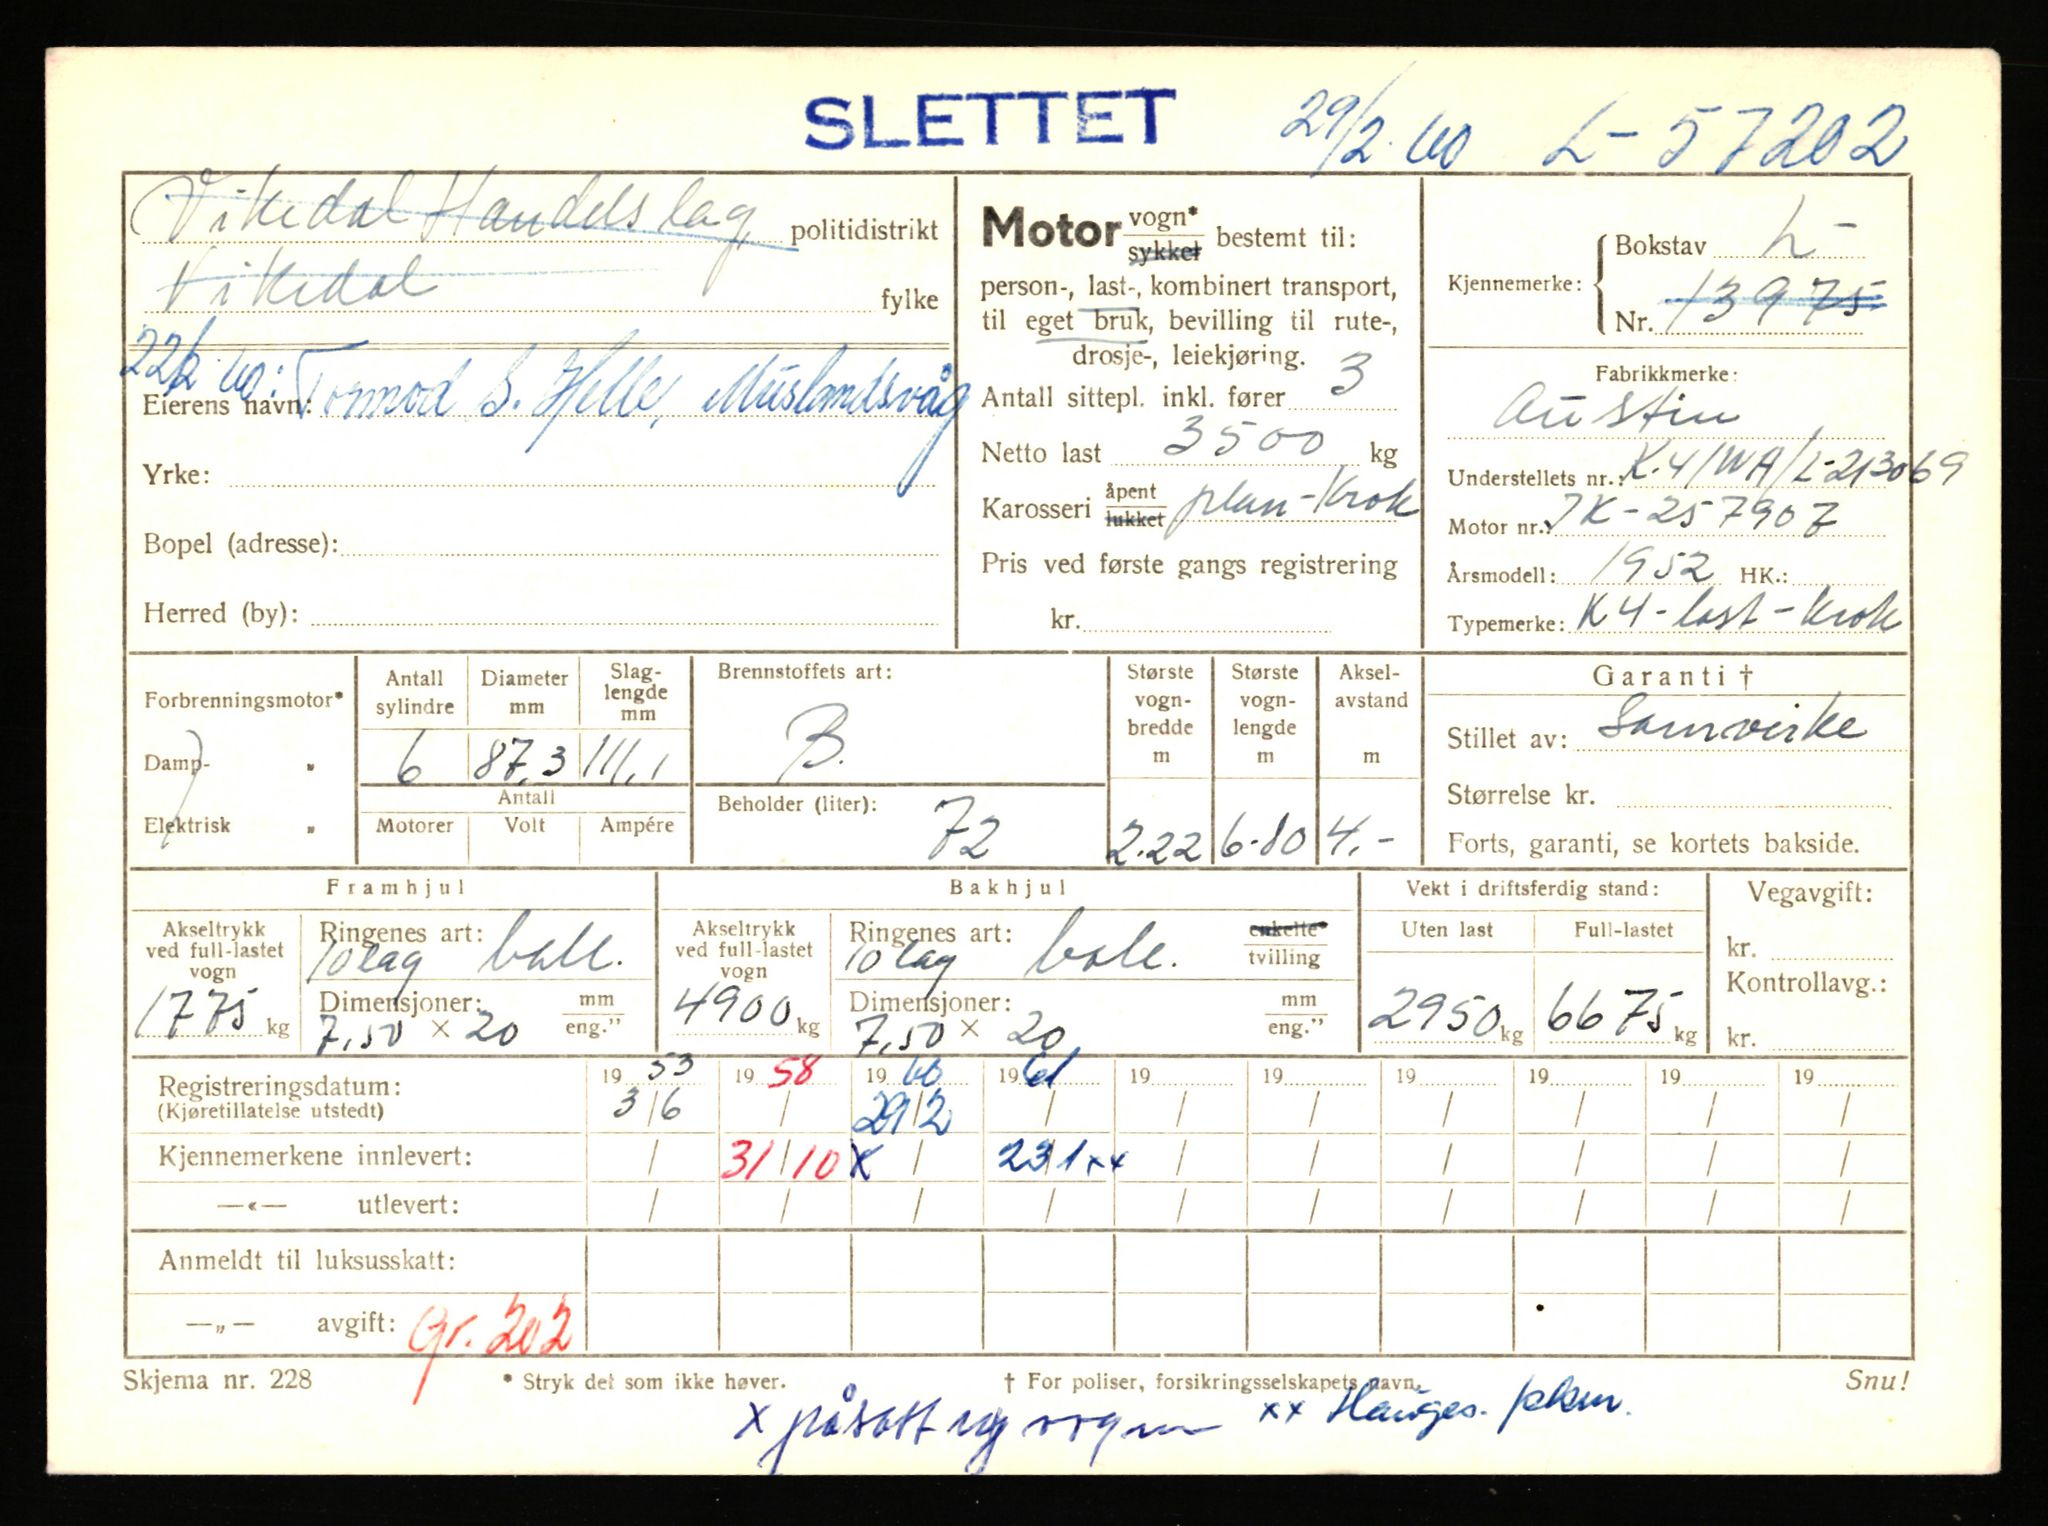 SLETTET 29/2.60 L-57202
Vikedal Handelslag, politidistrikt
Vikedal fylke
22/2 60: Tormod S. Helle, Muslandsvåg
Eierens navn:
Yrke:
Bopel (adresse):
Herred (by):
Motor vogn* / sykkel bestemt til:
person-, last-, kombinert transport,
til eget bruk, bevilling til rute-,
drosje-, leiekjøring.
Antall sittepl. inkl. fører 3
Netto last 3500 kg
Karosseri åpent / lukket plan-krok
Pris ved første gangs registrering
kr.
Kjennemerke: Bokstav L-
Nr. 13975
Fabrikkmerke:
Austin
Understellets nr.: K.4/WA/L-213069
Motor nr.: 1K-257907
Årsmodell: 1952 HK.:
Typemerke: K4-last-krok
Forbrenningsmotor*
Damp- „
Elektrisk „
Antall sylindre Diameter mm Slag-lengde mm
6 87,3 111,1
Antall
Motorer Volt Ampére
Brennstoffets art:
B.
Beholder (liter): 72
Største vogn-bredde m 2.22
Største vogn-lengde m 6.80
Aksel-avstand m 4.-
Garanti †
Stillet av: Samvirke
Størrelse kr.
Forts, garanti, se kortets bakside.
Framhjul
Akseltrykk ved full-lastet vogn 1775 kg
Ringenes art: 10 lag ball.
Dimensjoner: 7,50 × 20 mm / eng."
Bakhjul
Akseltrykk ved full-lastet vogn 4900 kg
Ringenes art: 10 lag ball. enkelte* / tvilling
Dimensjoner: 7,50 × 20 mm / eng."
Vekt i driftsferdig stand:
Uten last Full-lastet
2950 kg 6675 kg
Vegavgift:
kr.
Kontrollavg.:
kr.
Registreringsdatum: 19 53 19 58 19 60 19 61 19 19 19 19 19 19
(Kjøretillatelse utstedt) 3/6 / 29/2 / / / / / / /
Kjennemerkene innlevert: / 31/10 x / 23/1 xx / / / / / /
—«— utlevert: / / / / / / / / / /
Anmeldt til luksusskatt:
—„— avgift: Gr. 202
Skjema nr. 228 * Stryk det som ikke høver. † For poliser, forsikringsselskapets navn. Snu!
x påsatt ny vogn xx Hauges. pkm.